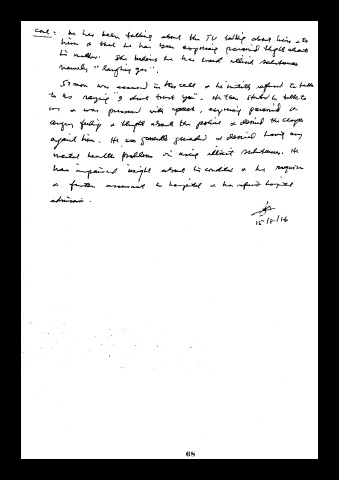 cont : he has been talking about the TV talking about him , to
him & that he has been expressing paranoid thoughts about
his mother. She believes he has used illicit substances
namely "laughing gas".
Simon was assessed in the cell & he initially refused to talk
to us saying "I dont trust you". He then started to talk to
us & was pressured with speech, expressing paranoid &
angry feelings & thoughts about the police & denied the charges
against him. He was generally guarded & denied having any
mental health problems or using illicit substances. He
has impaired insight about his condition & he requires
a further assessment in hospital & has refused hospital
admission.
15/8/16
68